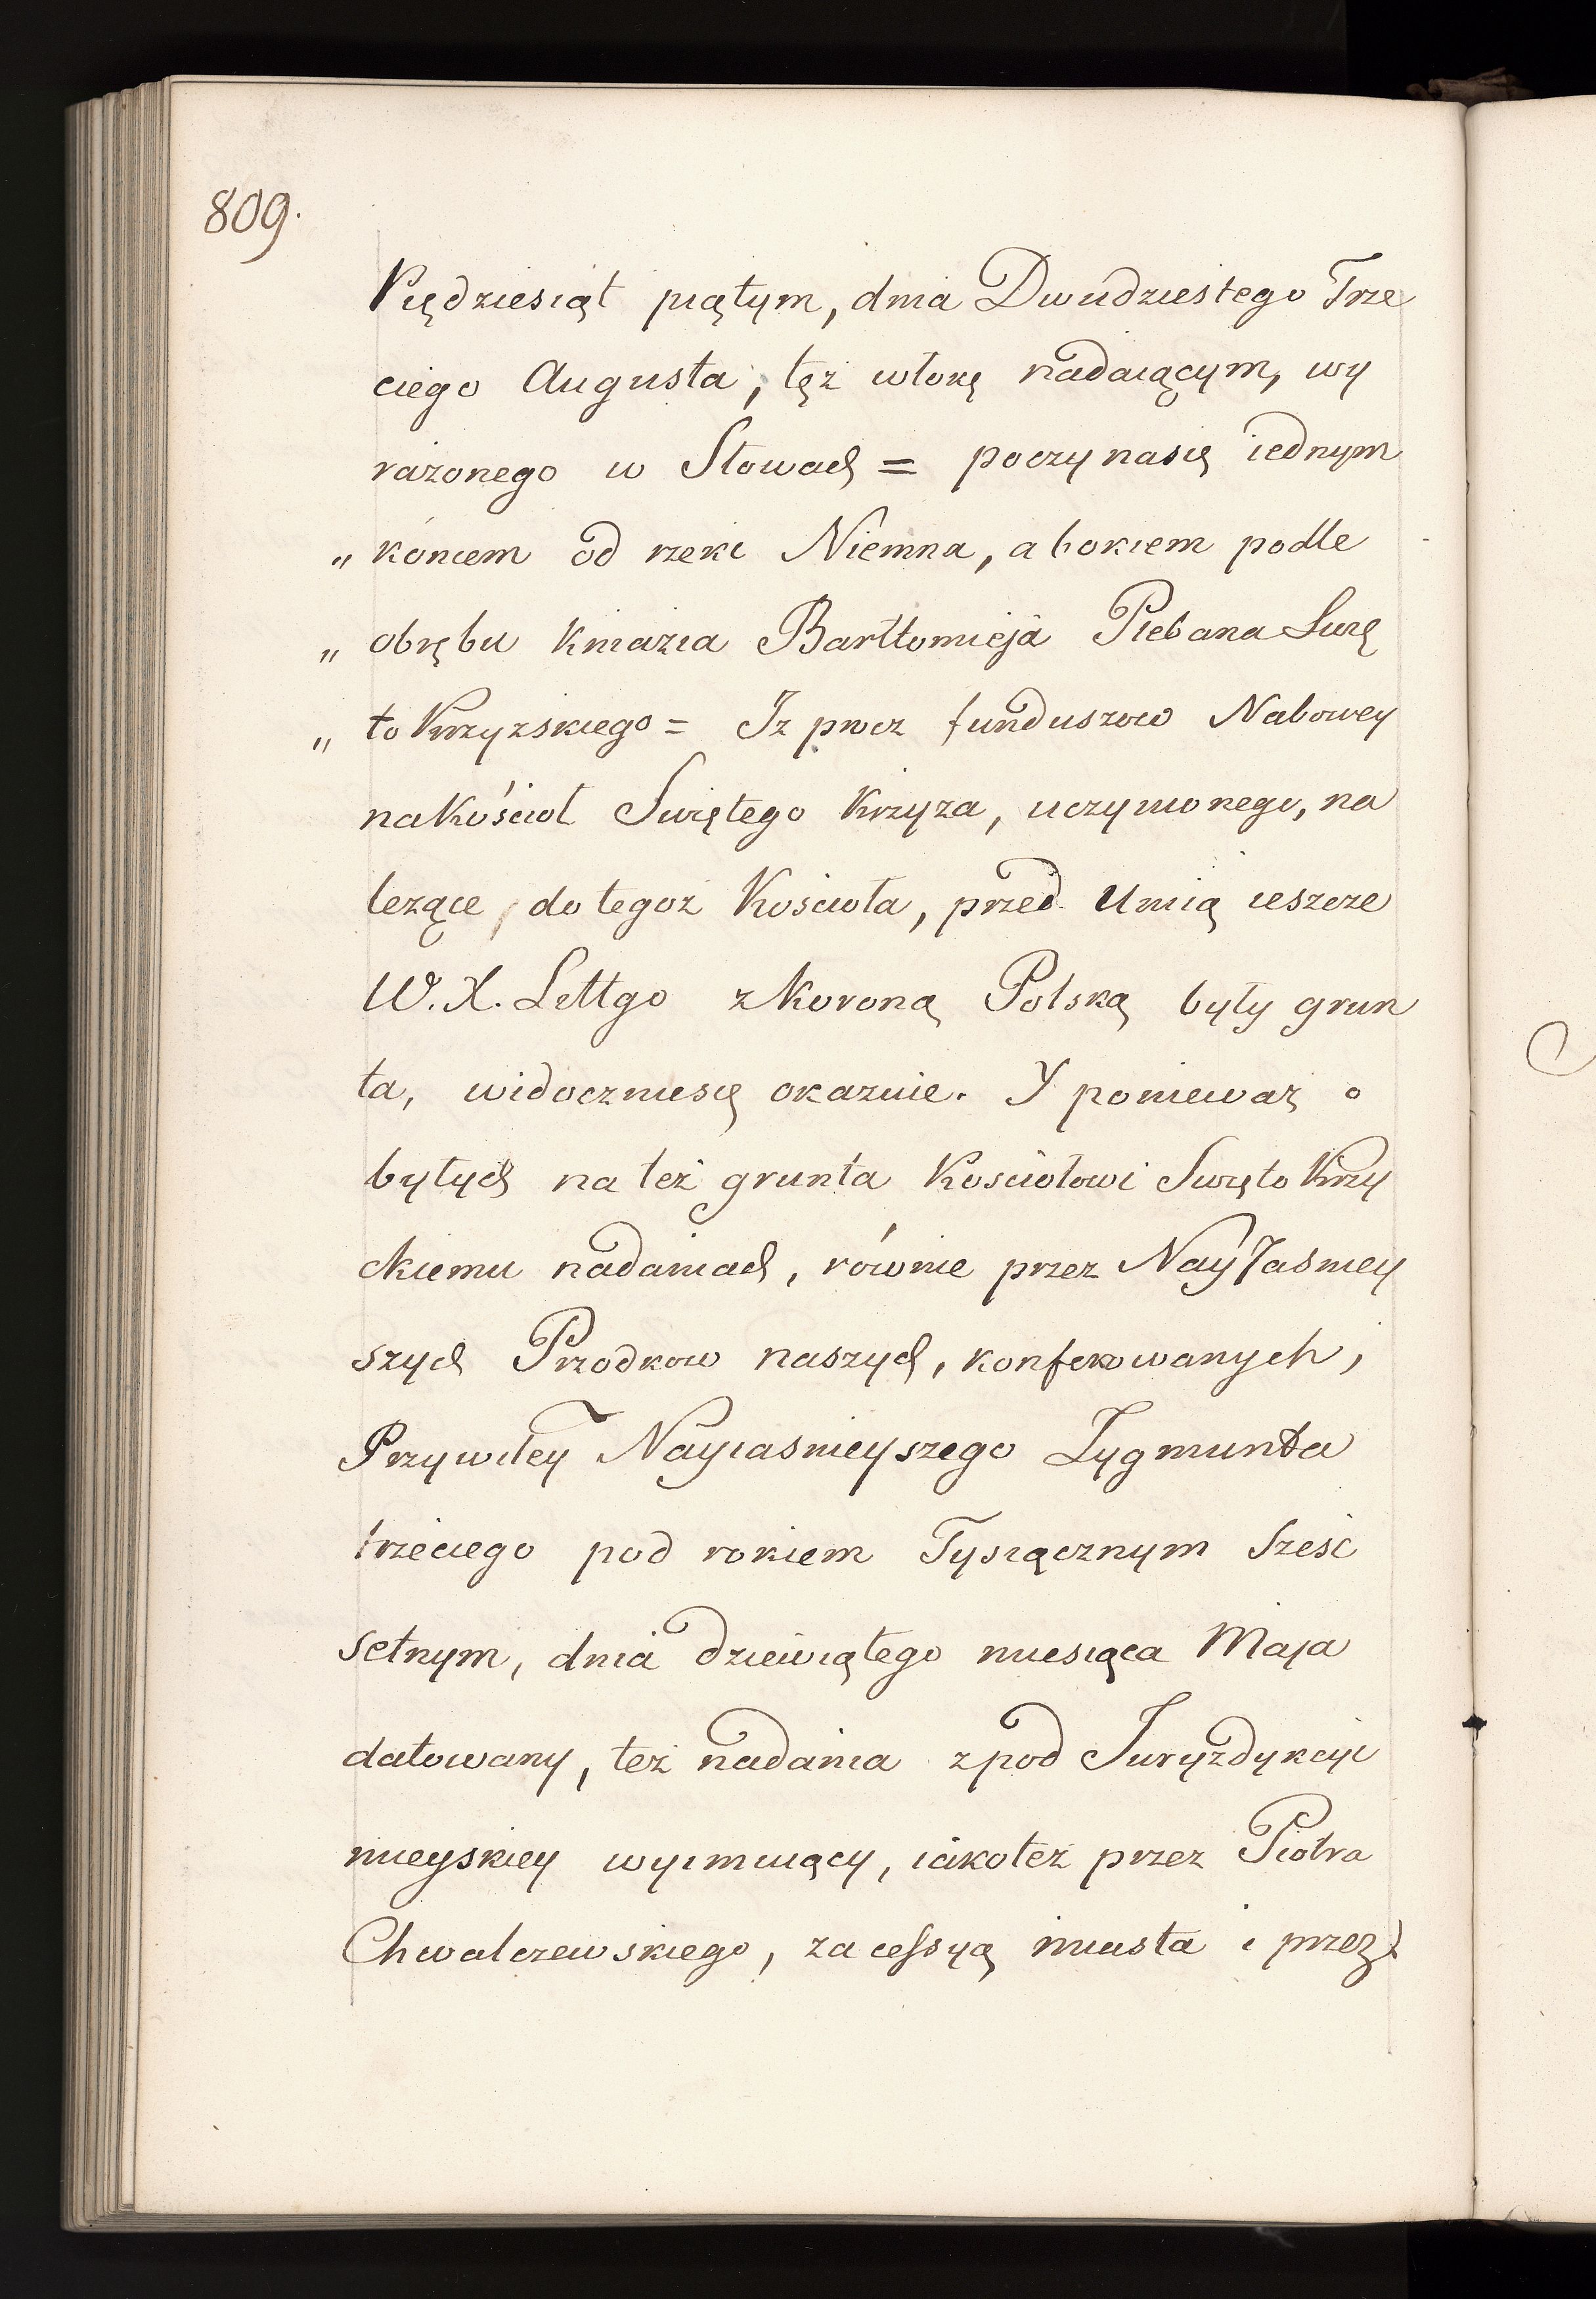 809.
Piędziesiąt piątym, dnia Dwudziestego Trze
ciego Augusta, tęż włokę nadaiącym, wy
rażonego w Słowach = poczynasię iednym
„ końcem od rzeki Niemna, a bokiem podle
„ obrębu Kniazia Bartłomieja Plebana Swię
„ to Krzyzskiego = Iz prócz funduszow Nabowey
na Kościoł Swiętego Krzyza, uczynionego, na
lezące, do tegoż Kościoła, przed Unią ieszcze
W. X. Littgo z Koroną Polską były grun
ta, widoczniesię okazuie. Y ponieważ o
byłych na też grunta Kościołowi Swięto Krzy
ckiemu nadaniach, równie przez NayJasniey
szych Przodkow naszych, konferowanych,
Przywiley Nayiasnieyszego Zygmunta
trzeciego pod rokiem Tysiącznym Sześć
setnym, dnia dziewiątego miesiąca Maja
datowany, też nadania zpod Juryzdykcyi
mieyskiey wyimuiący, iakoteż przez Piotra
Chwalczewskiego, za cessyą miasta i przez